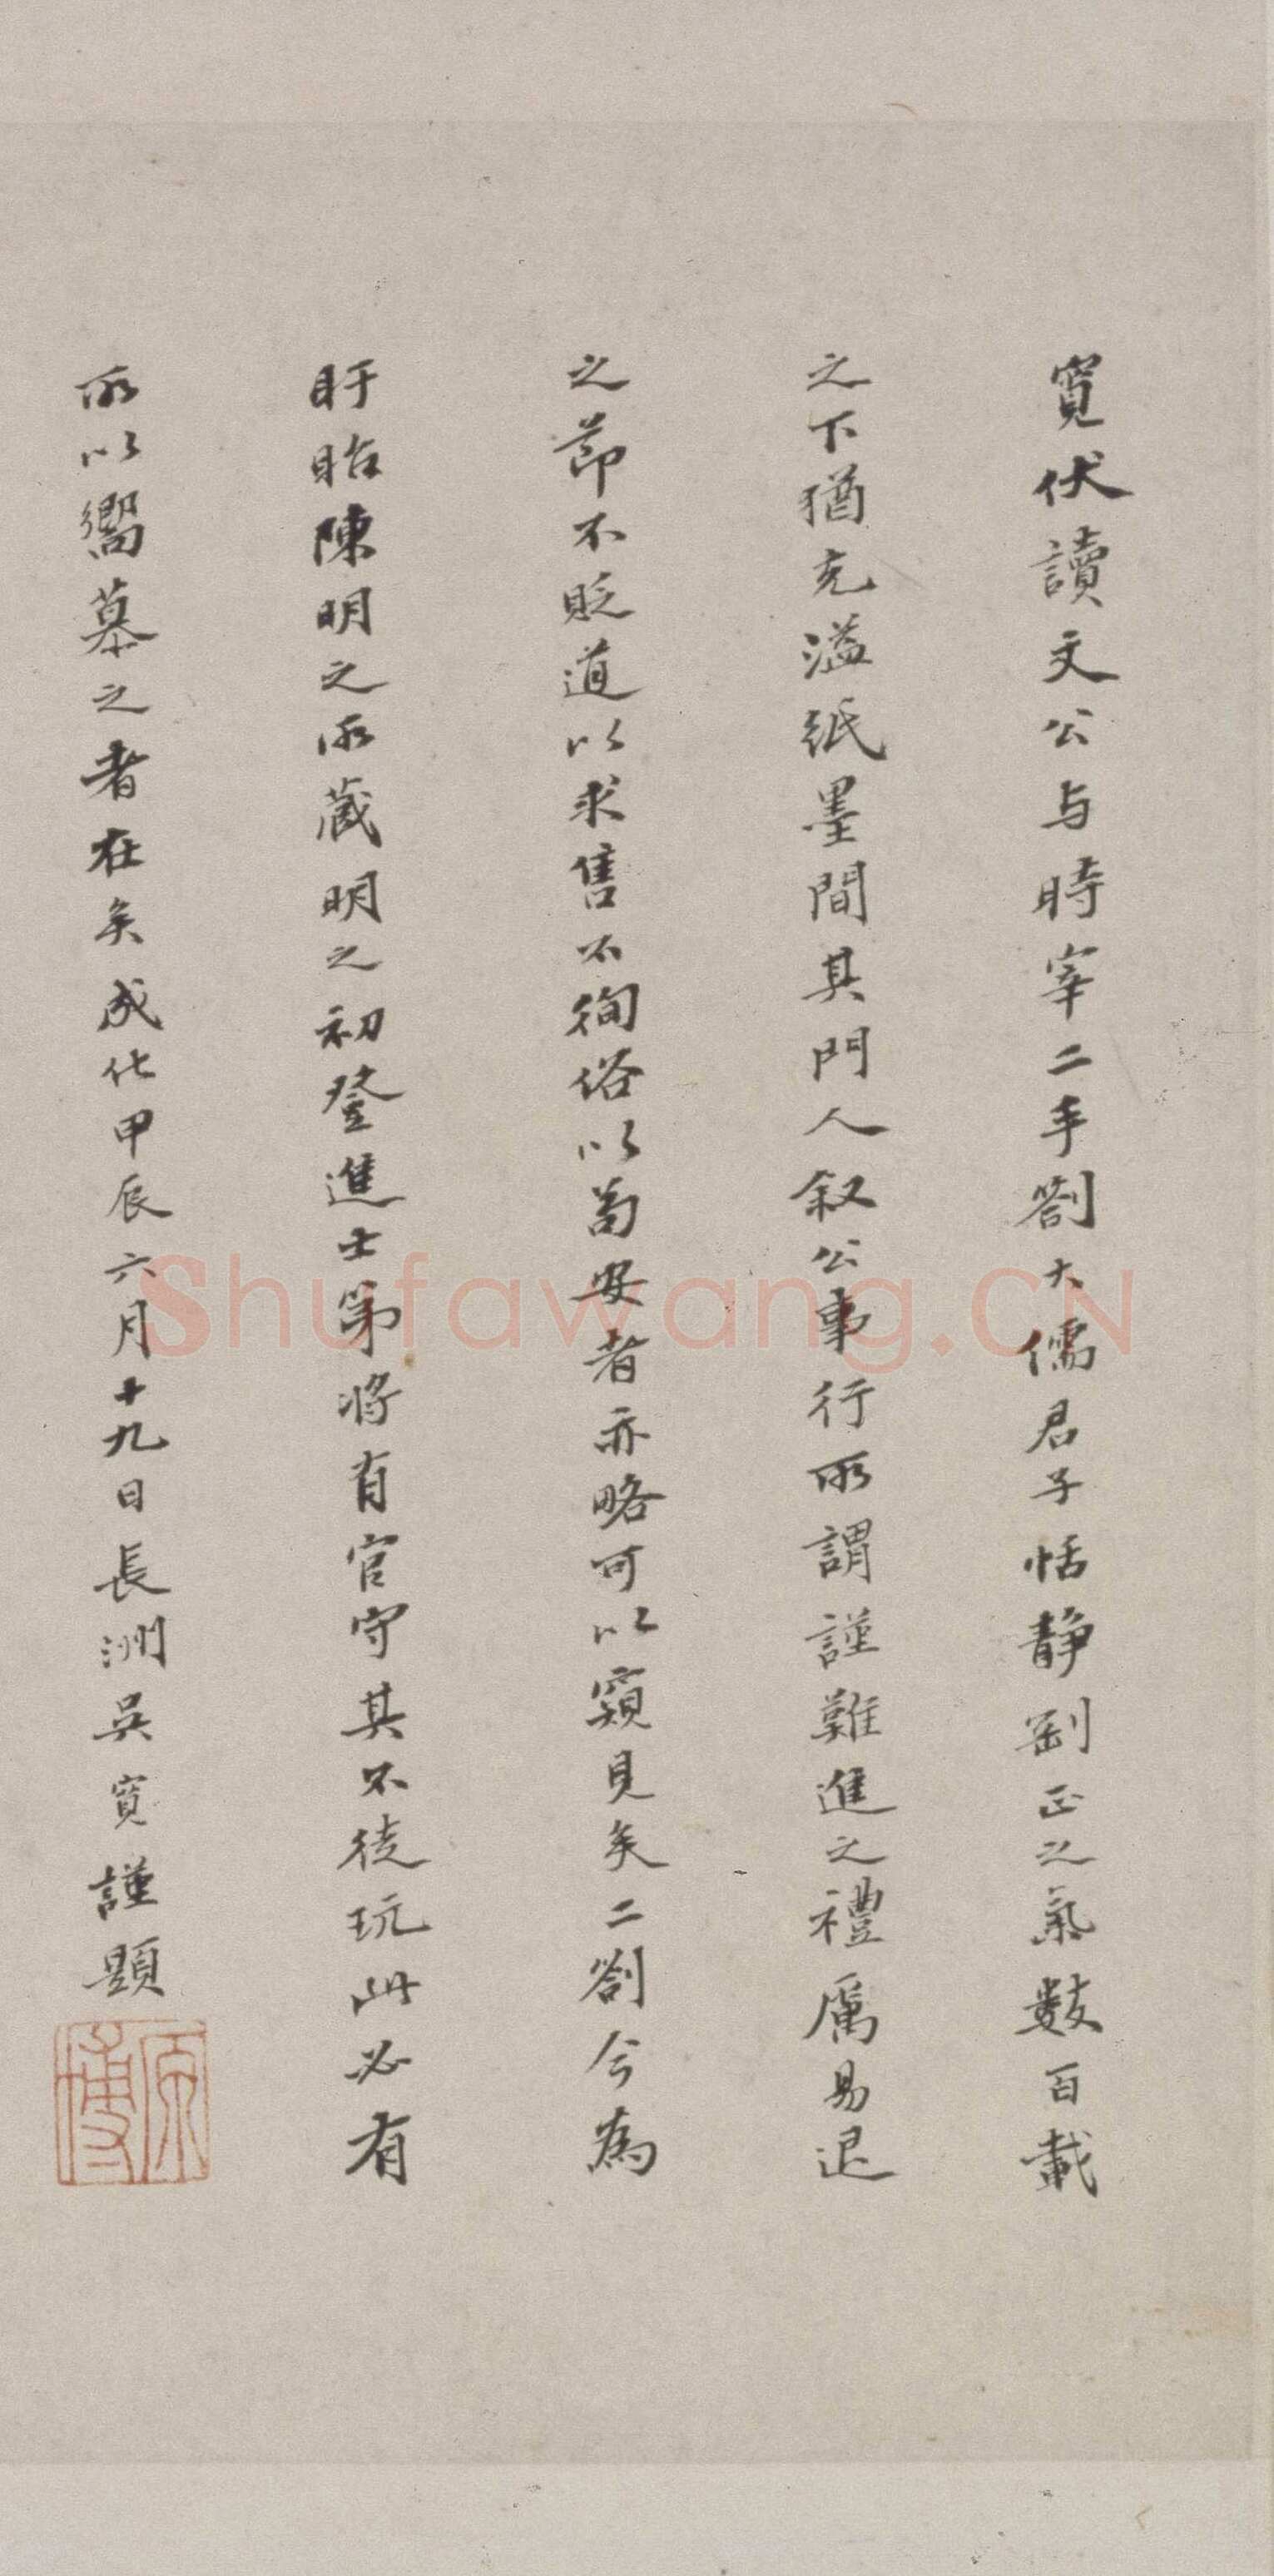 寬伏讀文公与時宰二手劄大儒君子恬静剛正之氣數百載
之下猶充溢紙墨間其門人叙公事行所謂謹難進之禮厲易退
之莭不貶道以求售不徇俗以苟安者亦略可以窺見矣二劄今為
盱眙陳明之所藏明之初登進士第将有官守其不徒玩此必有
所以嚮慕之者在矣成化甲辰六月十九日長洲吳寬謹題
原博
Shufawang.CN